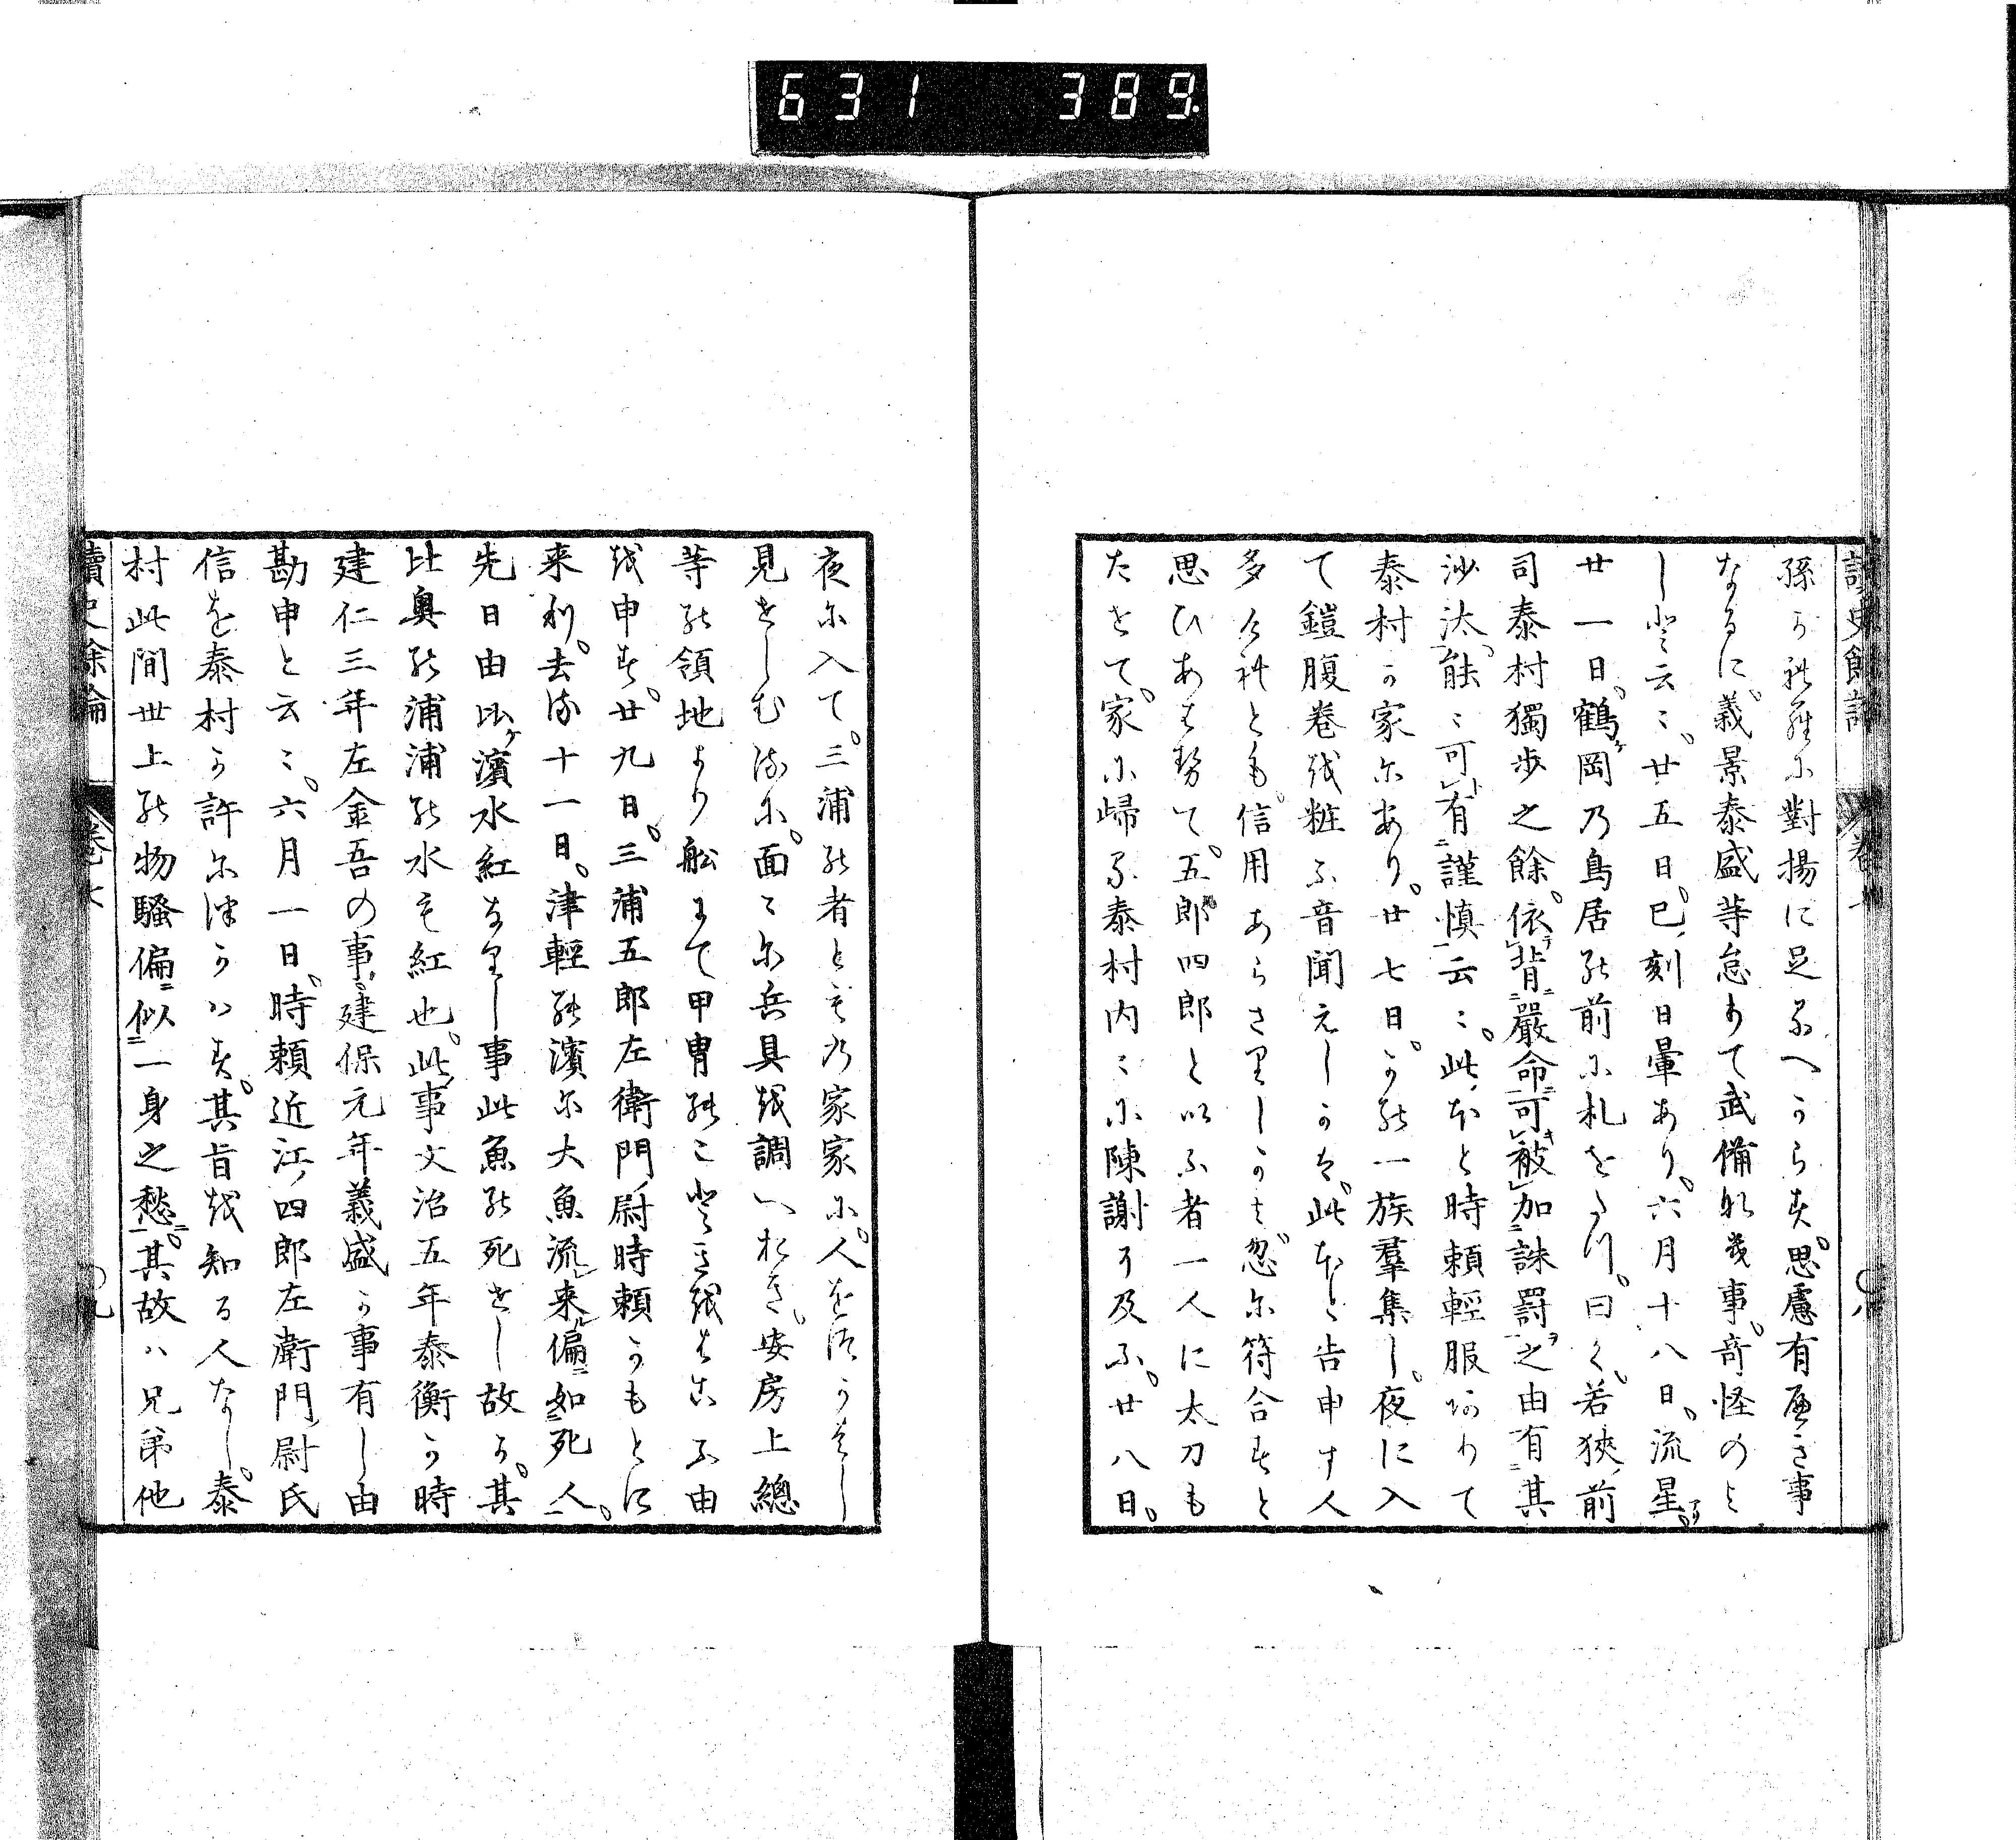 631 389.
孫か礼羅に對揚に足るへからす。思慮有へき事
なるに、義景泰盛等怠りて武備なき事、奇怪のよ
し と云〻。廿五日、巳ノ刻日暈あり。六月十八日、流星アリ。
廿一日、鶴ケ岡乃鳥居の前に札をたつ。曰く、若狹ノ前
司泰村獨歩之餘、依背嚴命可被加誅罰之由有其
沙汰、能〻可有謹慎云〻。此ほと時頼輕服ありて
泰村か家にあり。廿七日、かの一族羣集し、夜に入
て鎧腹巻を粧ふ音聞えしかは、此ほと告申す人
多けれとも、信用あらさりしかと、忽に符合すと
思ひあはせて、五郎四郎といふ者一人に太刀も
たせて、家に歸る。泰村内〻に陳謝に及ふ。廿八日、
夜に入て、三浦の者ともの家家に、人をつかはし
見せしむるに、面〻に兵具を調へおき、安房上總
等の領地より船にて甲冑の とき をはこふ由
を申す。廿九日、三浦五郎左衛門ノ尉時頼かもとに
来り、去る十一日、津輕の濱に大魚流レ来ル、偏如死人。
先日由比ケ濱水紅なりし事此魚の死せし故か。其
比奥の浦浦の水も紅也。此ノ事文治五年泰衡か時
建仁三年左金吾の事、建保元年義盛か事有し由
勘申と云〻。六月一日、時頼近江ノ四郎左衛門ノ尉氏
信を泰村か許につかはす。其旨を知る人なし。泰
村此間世上の物騷偏似一身之愁。其故ハ兄弟他
讀史餘論 巻七 〇九